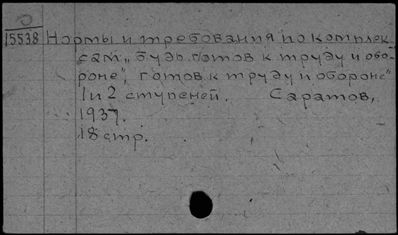 15538 Нормы и требования по комплек
сам „будь готов к труду и обо-
роне", готов к труду и обороне"
1 и 2 ступеней. Саратов,
1937.
18 стр.